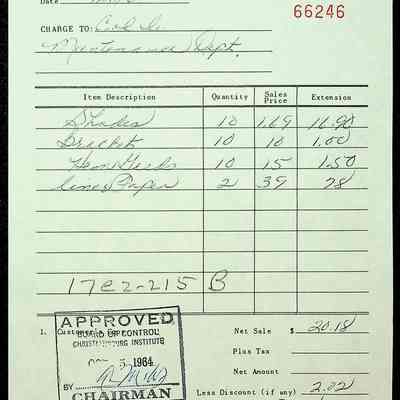 Date
66246
CHARGE TO:
Maintenance Dept.
Item Description Quantity Sales Price Extension
Shades 10 1.69 16.90
Bracket 10 10 1.00
10 15 1.50
Paper 2 39 78
17C2-215 B
APPROVED
BOARD OF CONTROL
CHRISTIANSBURG INSTITUTE
5 1964
BY
CHAIRMAN
1. Customer's Copy
Net Sale $ 20.18
Plus Tax
Net Amount
Less Discount (if any) 2.02